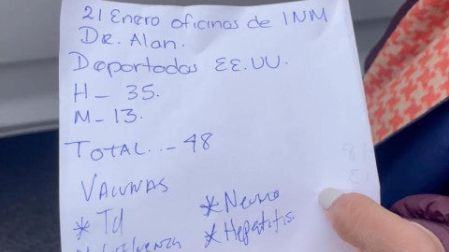 21 Enero oficinas de INM
Dr. Alan.
Deportados EE.UU.
H- 35.
M- 13.
TOTAL..- 48
VACUNAS
* Td
* Neumo
* Influenza
* Hepatitis